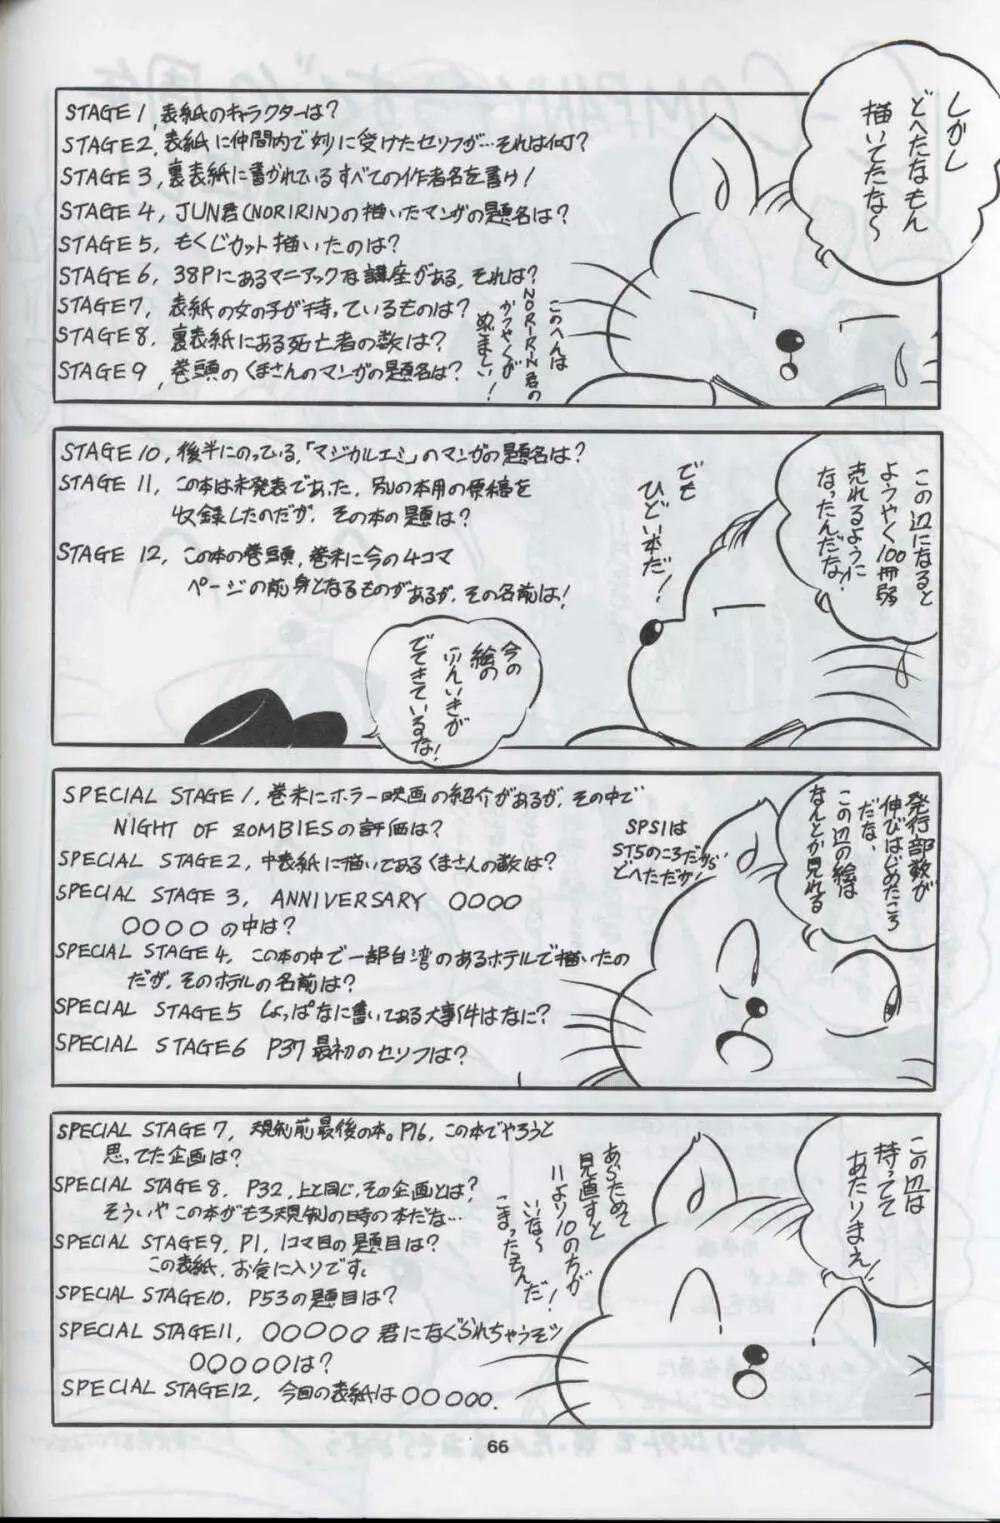 しかし
どへたなもん
描いてたな〜
STAGE 1, 表紙のキャラクターは?
STAGE 2, 表紙に仲間内で妙に受けたセリフが…それは何?
STAGE 3, 裏表紙に書かれているすべての作者名を書け!
STAGE 4, JUN君(NORIRIN)の描いたマンガの題名は?
STAGE 5, もくじカット描いたのは?
STAGE 6, 38Pにあるマニアックな講座がある, それは?
STAGE 7, 表紙の女の子が持っているものは?
STAGE 8, 裏表紙にある死亡者の数は?
STAGE 9, 巻頭のくまさんのマンガの題名は?
このへんは
NORIRIN君の
かつやくが
めざましい!
この辺になると
ようやく100冊弱
売れるように
なったんだな!
でも
ひどい本だ!
STAGE 10, 後半にのっている,「マジカルエミ」のマンガの題名は?
STAGE 11, この本は未発表であった, 別の本用の原稿を
収録したのだが, その本の題は?
STAGE 12, この本の巻頭, 巻末に今の4コマ
ページの前身となるものがあるが, その名前は!
今の
絵の
ふんいきが
でてきているな!
発行部数が
伸びはじめたころ
だな,
この辺の絵は
なんとか見れる
SPS1は
ST5のころだから
どへただが!
SPECIAL STAGE 1, 巻末にホラー映画の紹介があるが, その中で
NIGHT OF ZOMBIESの評価は?
SPECIAL STAGE 2, 中表紙に描いてあるくまさんの数は?
SPECIAL STAGE 3, ANNIVERSARY ○○○○
○○○○の中は?
SPECIAL STAGE 4, この本の中で一部台湾のあるホテルで描いたの
だが, そのホテルの名前は?
SPECIAL STAGE 5 しょっぱなに書いてある大事件はなに?
SPECIAL STAGE 6 P37最初のセリフは?
この辺は
持ってて
あたりまえ!
あらためて
見直すと
11より10の方が
いいな〜
こまったもんだ!
SPECIAL STAGE 7, 規制前最後の本。P16, この本でやろうと
思ってた企画は?
SPECIAL STAGE 8, P32, 上と同じ, その企画とは?
そういやこの本がもろ規制の時の本だな…
SPECIAL STAGE 9, P1, 1コマ目の題目は?
この表紙, お気に入りです。
SPECIAL STAGE 10, P53の題目は?
SPECIAL STAGE 11, ○○○○○君になぐられちゃうぞッ
○○○○○は?
SPECIAL STAGE 12, 今回の表紙は○○○○○.
66